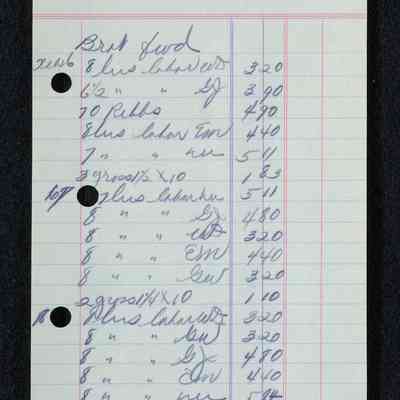 Brot fwd
8 hrs labor WD 3 20
6 1/2 " " GJ 3 90
70 Ribbs 4 90
8 hrs labor Em 4 40
7 " " 5 11
3 gross 1/2 X 10 1 83
7 hrs labor 5 11
8 " " GJ 4 80
8 " " WD 3 20
8 " " Em 4 40
8 " " GW 3 20
2 gross 1 1/4 X 10 1 10
8 hrs labor WD 3 20
8 " " GW 3 20
8 " " GJ 4 80
8 " " Em 4 40
8 " " 5 84